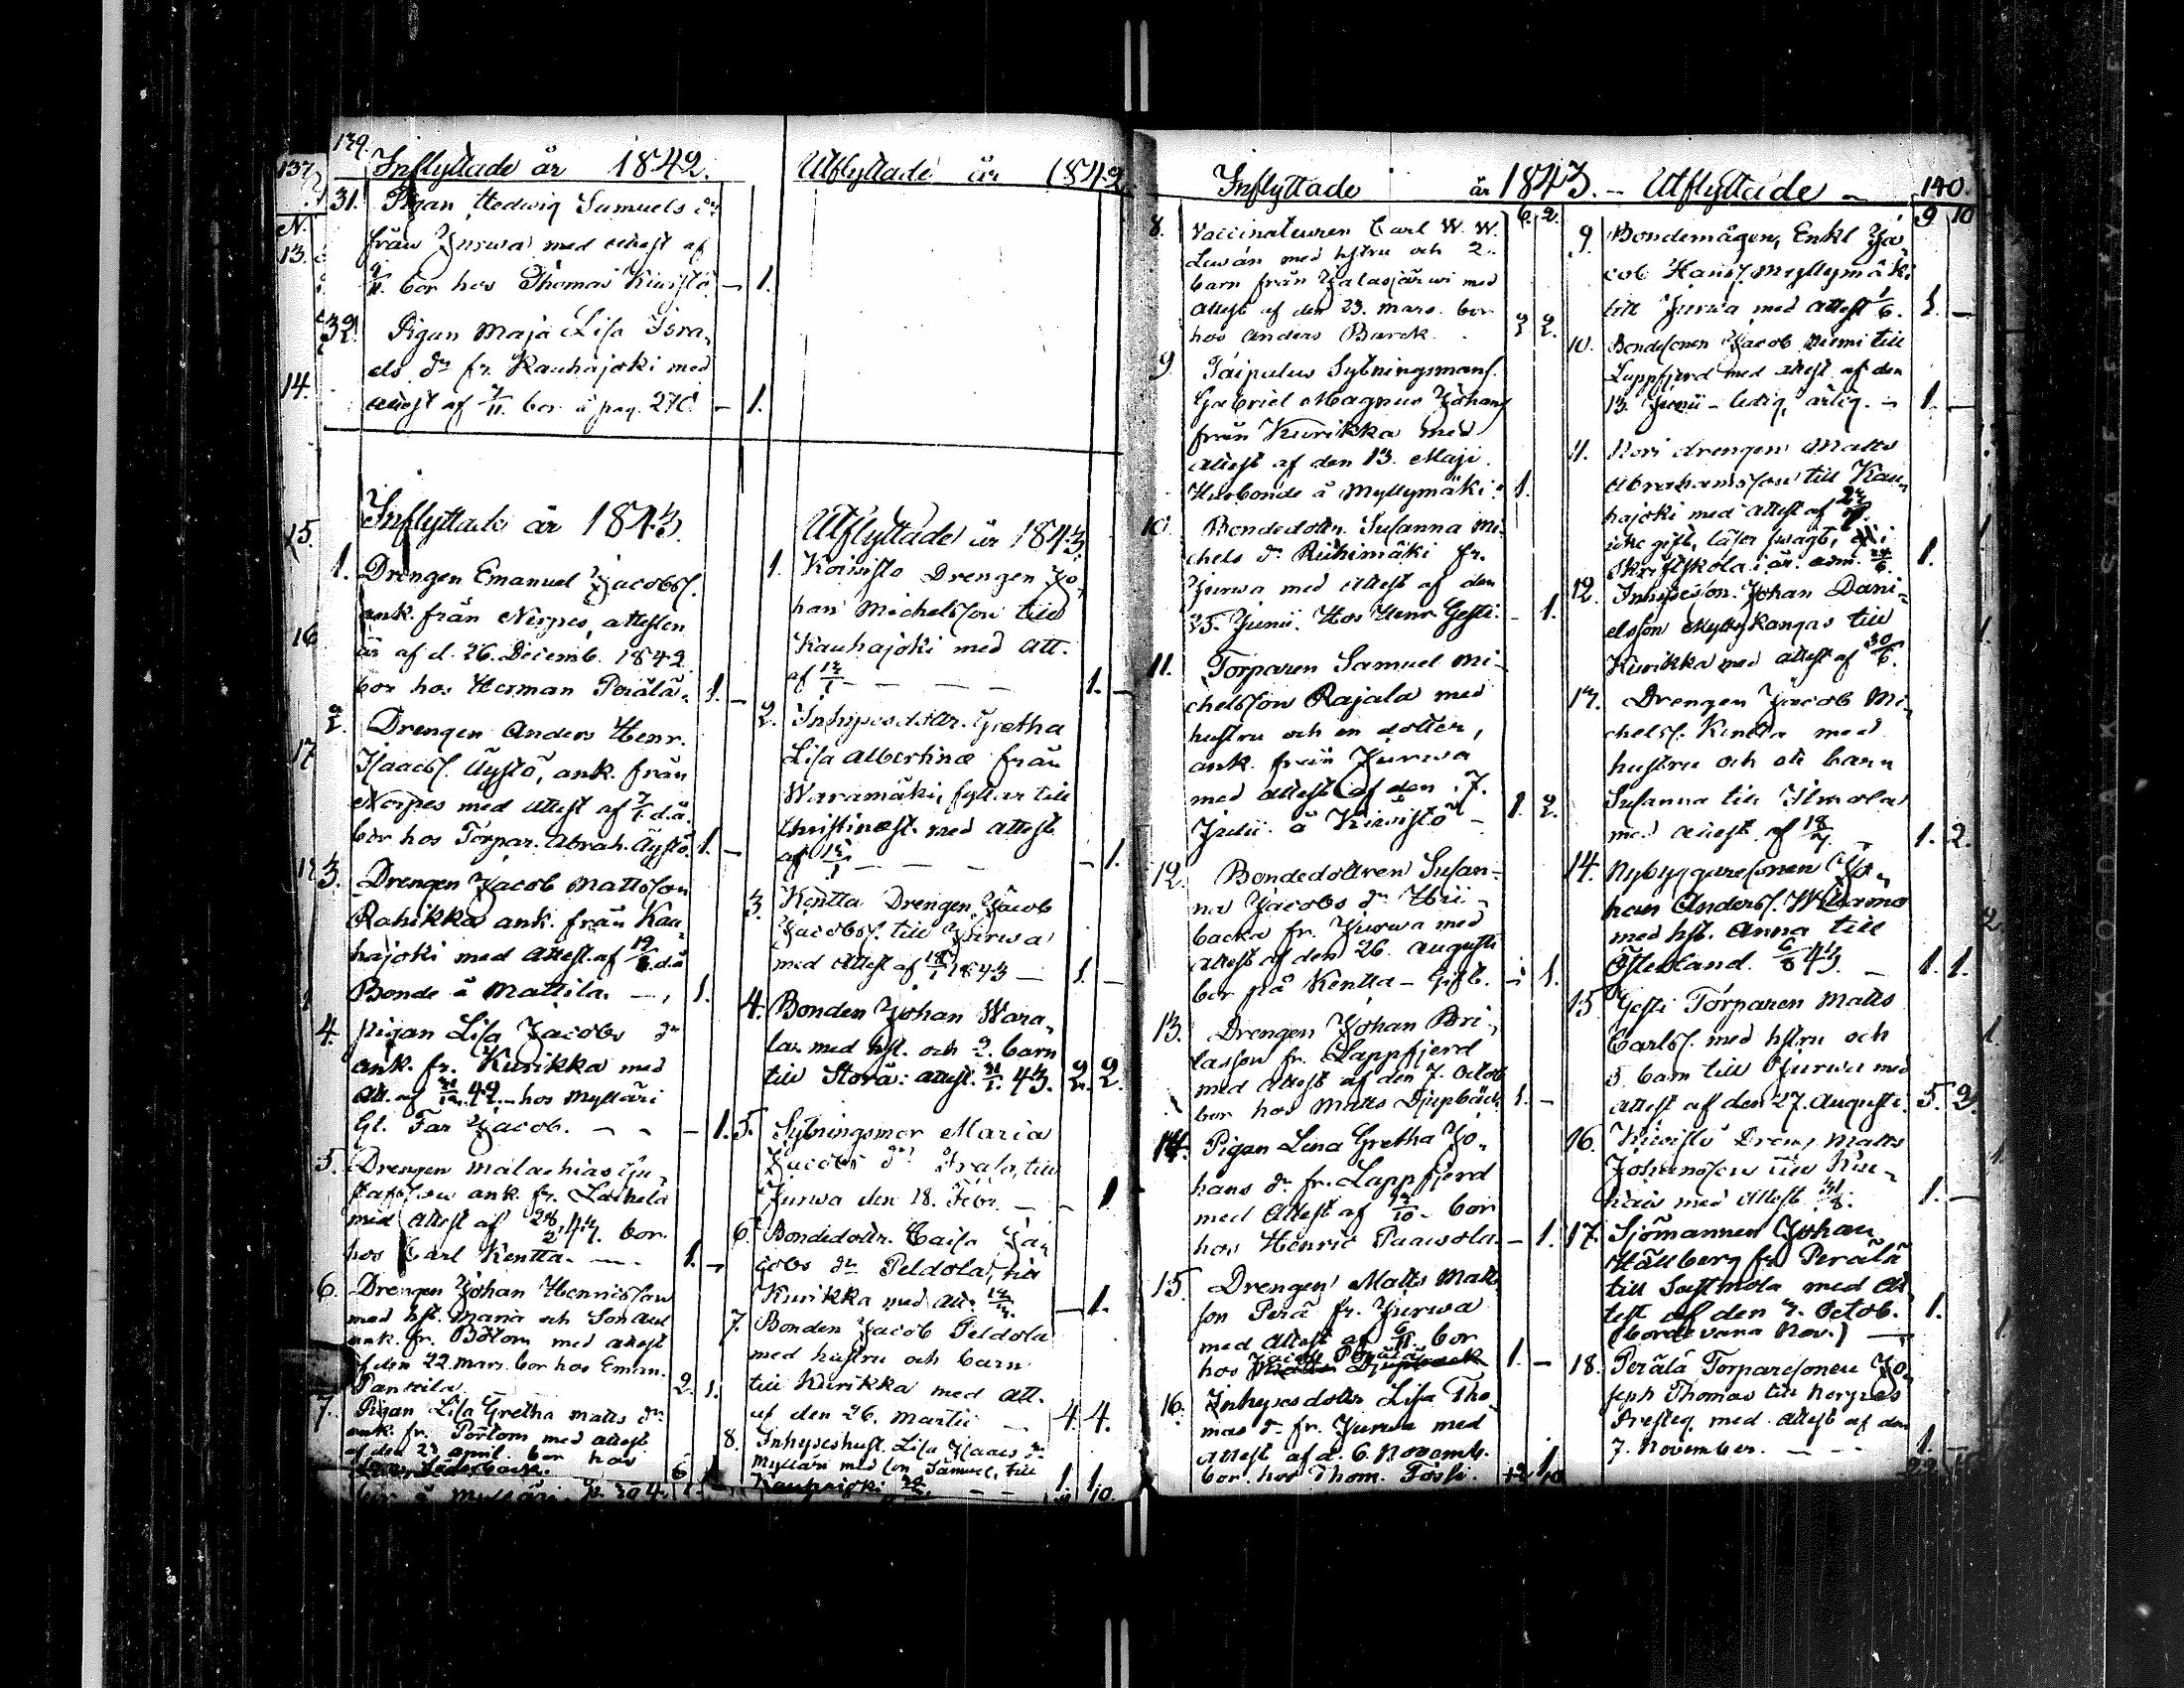 139.
Inflyttade år 1842.
31. Pigan Hedwig Samuels dr
från Jurwa med attest af
9/11. bor hos Thomas Kiwistö - 1.
32. Pigan Maja Lisa Isra-
els dr fr. Kauhajoki med
attest af 7/11. bor å pag. 270 - 1.
Utflyttade år 1842
Inflyttade år 1843.
1. Drengen Emanuel Jacobs/.
ank. från Nerpes, attesten
är af d. 26. Decemb. 1842
bor hos Herman Perälä. 1. -
2. Drengen Anders Henr.
Isaacs/. Äystö, ank. från
Nerpes med attest af 7/1. d.å.
bor hos Torpar. Abrah. Äystö. 1. -
3. Drengen Jacob Mattsson
Rahikka ank. från Kau-
hajoki med attest af d.å
Bonde å Mattila. - 1.
4. Pigan Lisa Jacobs dr
ank. fr. Kurikka med
att. af 42 - hos Mylläri
Gl. Far Jacob. - - - 1.
5. Drengen Malachias Gu-
stafsson ank. fr. Laihela
med attest af bor
hos Carl Kentta. - 1. -
6. Drengen Johan Hennisson
med hst. Maria och Son
ank. fr. Bötom med attest
af den 22. mars. bor hos Eman.
Panttila 2. 1.
7. Pigan Lisa Gretha Matts dr
ank. fr. Pörtom med attest
af den 23 april bor hos
bor å Mylläri p. 304.
Utflyttade år 1843
1. Koiwisto Drengen Jo-
han Michelsson till
Kauhajoki med att.
af - - - 1. -
2. Inhysesdottr. Gretha
Lisa Albertina från
Waramäki, flyttar till
Christinest. med attest
af - - - - 1.
3. Kentta Drengen Jacob
Jacobs/. till Jurwa
med attest af 1843 - 1. -
4. Bonden Johan Wara-
la med hst. och 2. barn
till Storå: attest. 31/1. 43. 2. 2.
5. Sytningsmor Maria
Jacobs dr till
Jurwa den 18. Febr. - - 1
6. Bondedottr. Caisa Ja-
cobs dr Peldola, till
Kurikka med att. - 1.
7. Bonden Jacob Peldola
med hustru och barn
till Kurikka med att.
af den 26. Martii - 4. 4.
8. Inhyseshust. Lisa Isaacs dr
Mylläri med son Samuel, till
Kauhajoki - - 1. 1
10.
Inflyttade år 1843. - Utflyttade - 140.
6. 2.
8. Vaccinateuren Carl W. W.
Lewán med hstru och 2.
barn från Jalasjärwi med
attest af den 23. mars. bor
hos Anders Barck. 2 2.
9 Taipalus Sytningsmans/.
Gabriel Magnus Johans/
från Kurikka med
attest af den 13. Maji.
Husbonde å Myllymäki. 1.
10. Bondedottr. Susanna Mi-
chels dr Riihimäki fr.
Jurwa med attest af den
25. Junii. Hos Henr. Gesti. - 1.
11. Torparen Samuel Mi-
chelsson Rajala med
hustru och en dotter,
ank. från Jurwa
med attest af den 7.
Julii. å Kiwistö - 1. 2.
12. Bondedottren Susan-
na Jacobs dr
backa fr. Jurwa med
attest af den 26. augusti
bor på Kentta - Gift. - 1.
13. Drengen Johan
lasson fr. Lappfjerd
med attest af den 7. Octob
bor hos Matts Djupbäck 1. -
14. Pigan Lena Gretha Jo-
hans dr fr. Lappfjerd
med attest af bor
hos Henric Paawola. - 1.
15. Drengen Matts Matts
son Perä fr. Jurwa
med attest af 6/11 bor
hos Jacob Perälä 1. -
16. Inhysesdottr Lisa Tho-
mas dr fr. Jurwa med
attest af d. 6. Novemb.
bor hos Thom. 1
12 10
9 10
9. Bondemågen, Enkl. Ja-
cob Hans/. Myllymäki
till Jurwa med attest 1/6. 1. -
10. Bondesonen Jacob Niemi till
Lappfjerd med attest af den
13. Junii - ledig, ärlig. - 1. -
11. Nori drengen Matts
Abrahamsson till Kau-
hajoki med attest af
icke gift, läser swagt, i
Skriftskola i år. adm. 24/6. 1.
12. Inhysesson Johan Dani-
elsson Myllykangas till
Kurikka med attest af 30/6.
13. Drengen Jacob Mi-
chels/. Kentta med
hustru och ett barn
Susanna till Ilmola
med attest af - 1. 2.
14. Nybyggaresonen Jo-
han Anders/.
med hst. Anna till
43. - 1. 1.
15 Gesti Torparen Matts
Carls/. med hstru och
5 barn till Jurwa med
attest af den 27. Augusti. 5. 2.
16. Kiwistö Dreng. Matts
Johansson till
med attest 1. -
17. Sjömannen Johan
Hällberg fr. Perälä
till Sastmola med at-
test af den 7. Octob. 1.
(borde vara Nov.) -
18. Perälä Torparesonen Jo-
seph Thomas till Nerpes
med attest af den
7. November. - - - 1. -
22